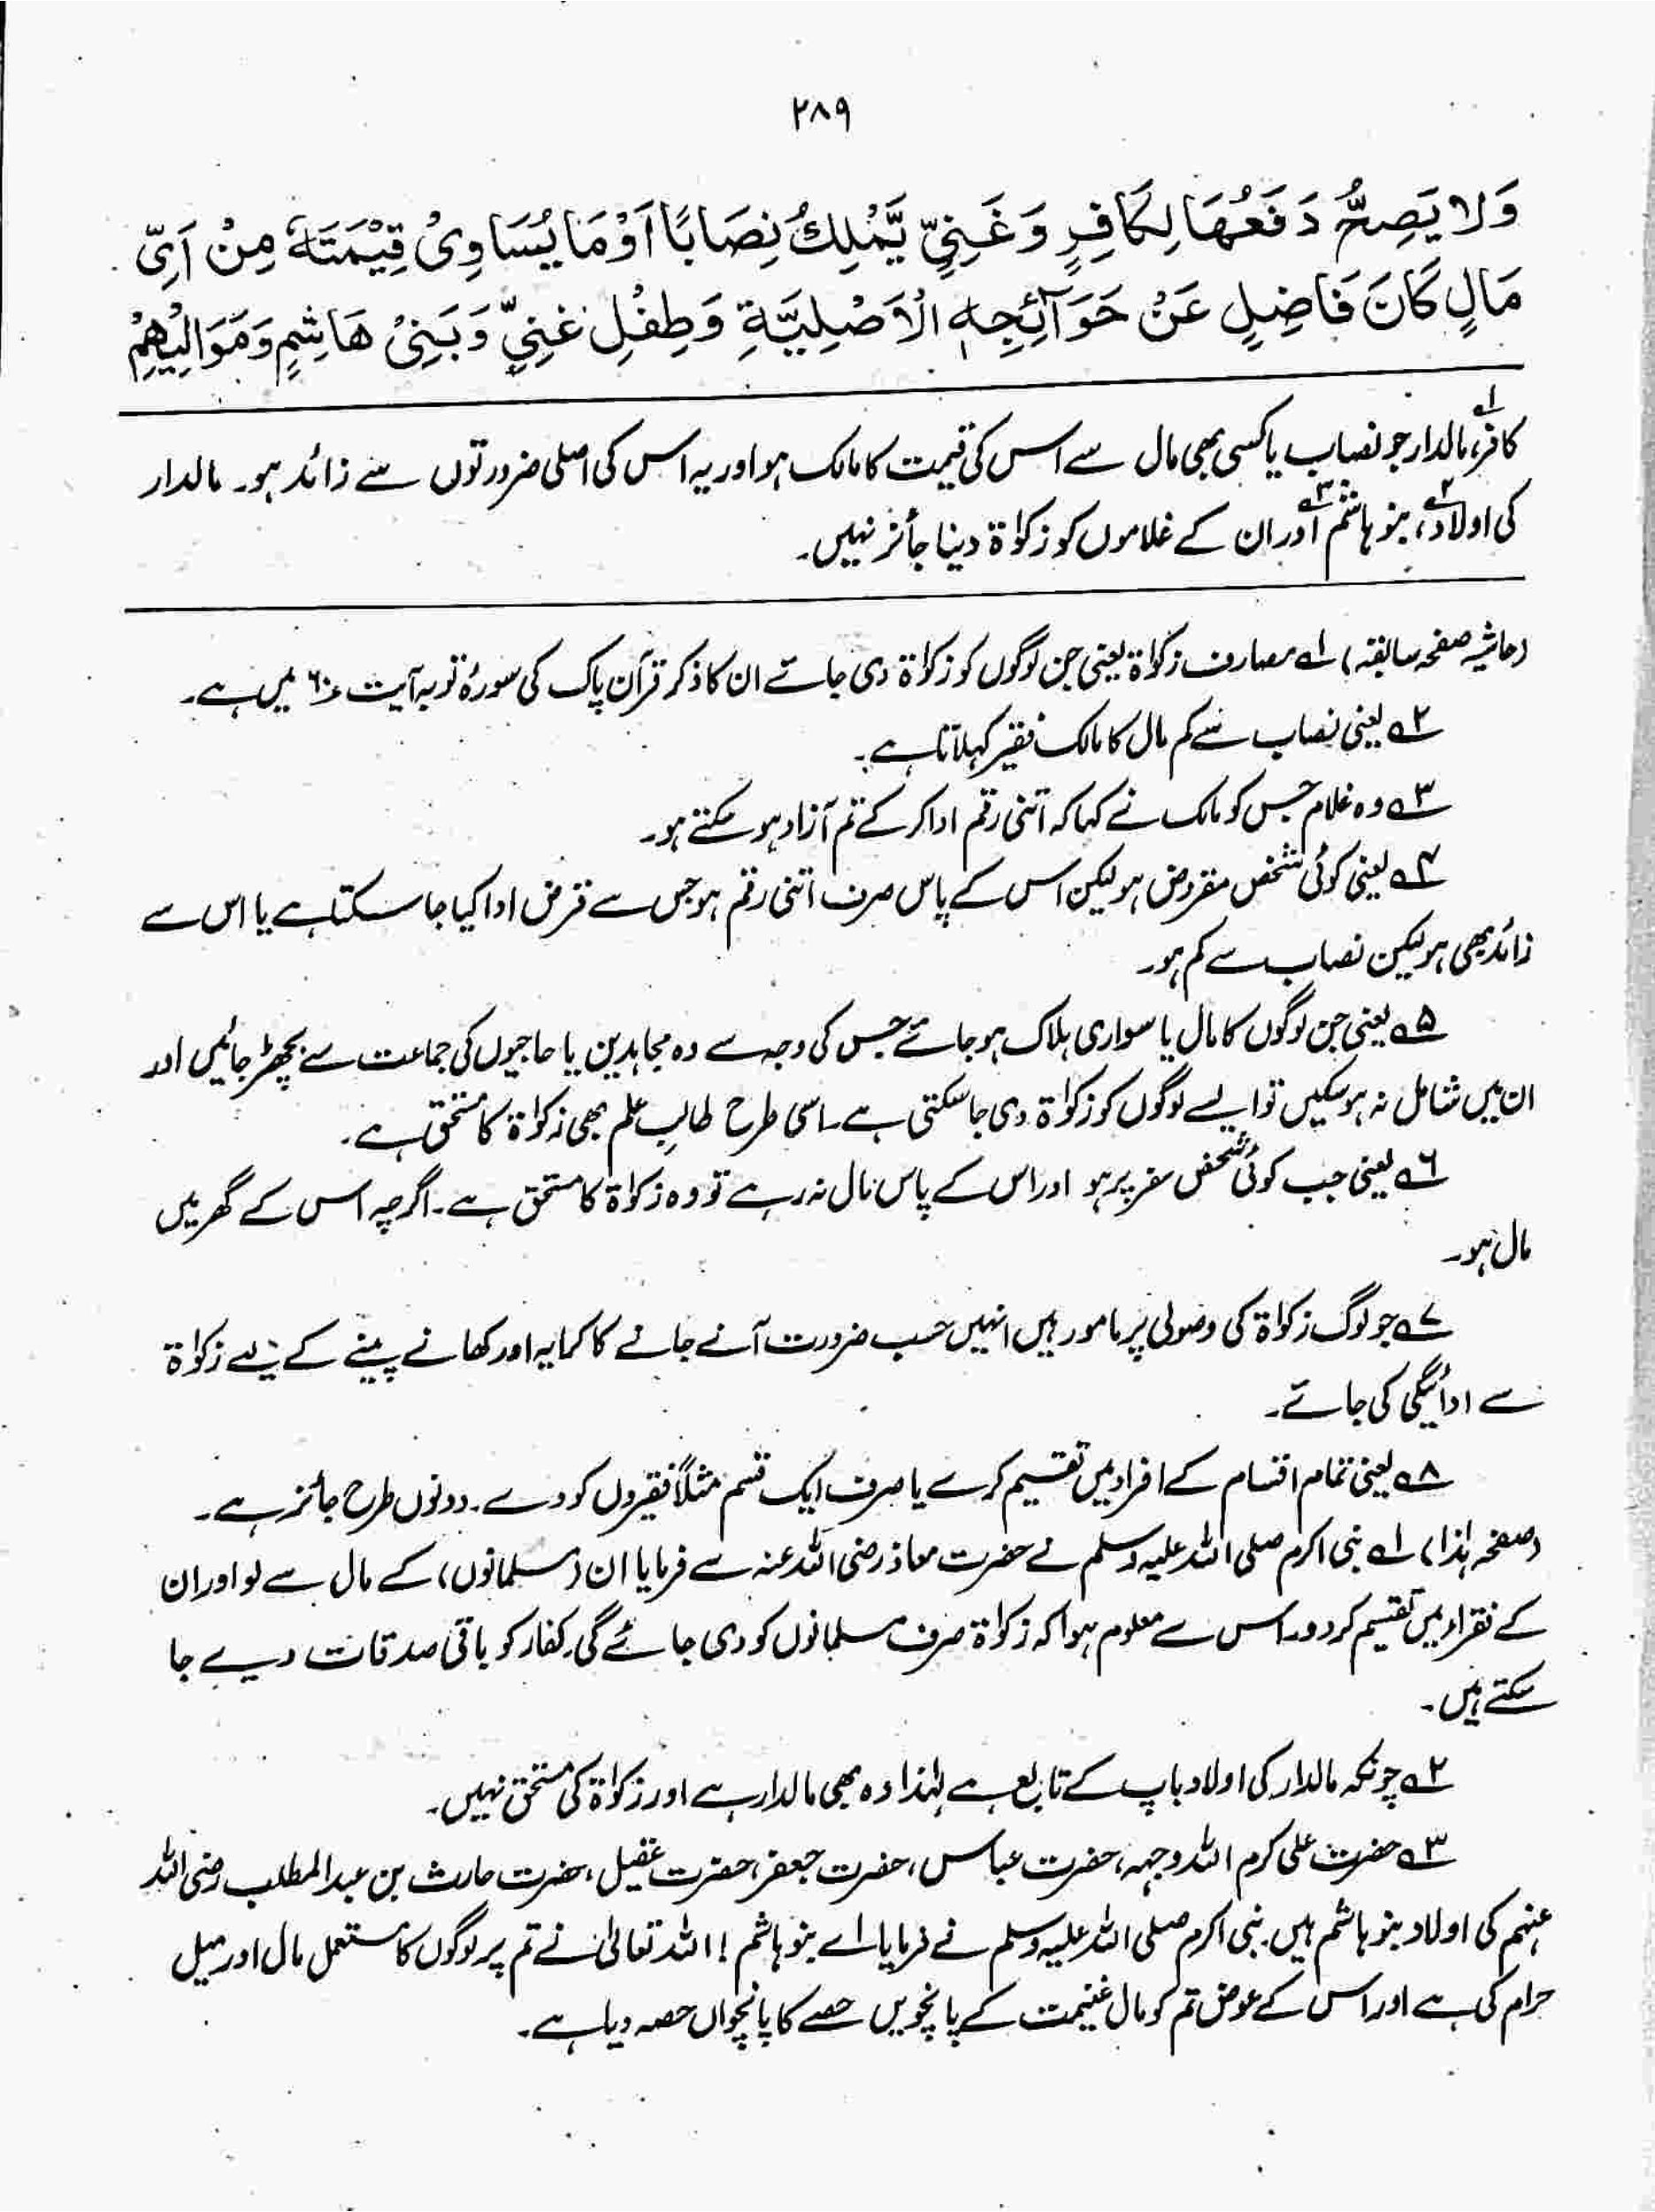 ۲۸۹
وَلَا يَصِحُّ دَفْعُهَا لِكَافِرٍ وَغَنِيٍّ يَّمْلِكُ نِصَابًا اَوْ مَا يُسَاوِىْ قِيْمَتَهٗ مِنْ اَىِّ
مَالٍ كَانَ فَاضِلٍ عَنْ حَوَآئِجِهِ الْاَصْلِيَّةِ وَطِفْلِ غَنِيٍّ وَبَنِىْ هَاشِمٍ وَمَوَالِيْهِمْ
کافر،۱ مالدار جو نصاب یا کسی بھی مال سے اس کی قیمت کا مالک ہو اور یہ اس کی اصلی ضرورتوں سے زائد ہو۔ مالدار
کی اولاد۲، بنو ہاشم۳ اور ان کے غلاموں کو زکوٰۃ دینا جائز نہیں۔
(حاشیہ صفحہ سابقہ) ۱؎ مصارف زکوٰۃ یعنی جن لوگوں کو زکوٰۃ دی جائے ان کا ذکر قرآن پاک کی سورۂ توبہ آیت ۶۰ میں ہے۔
۲؎ یعنی نصاب سے کم مال کا مالک فقیر کہلاتا ہے۔
۳؎ وہ غلام جس کو مالک نے کہا کہ اتنی رقم ادا کر کے تم آزاد ہو سکتے ہو۔
۴؎ یعنی کوئی شخص مقروض ہو لیکن اس کے پاس صرف اتنی رقم ہو جس سے قرض ادا کیا جا سکتا ہے یا اس سے
زائد بھی ہو لیکن نصاب سے کم ہو۔
۵؎ یعنی جن لوگوں کا مال یا سواری ہلاک ہو جائے جس کی وجہ سے وہ مجاہدین یا حاجیوں کی جماعت سے بچھڑ جائیں اور
ان میں شامل نہ ہو سکیں تو ایسے لوگوں کو زکوٰۃ دی جا سکتی ہے۔ اسی طرح طالبِ علم بھی زکوٰۃ کا مستحق ہے۔
۶؎ یعنی جب کوئی شخص سفر پر ہو اور اس کے پاس مال نہ رہے تو وہ زکوٰۃ کا مستحق ہے۔ اگرچہ اس کے گھر میں
مال ہو۔
۷؎ جو لوگ زکوٰۃ کی وصولی پر مامور ہیں انہیں حسب ضرورت آنے جانے کا کرایہ اور کھانے پینے کے لیے زکوٰۃ
سے ادائیگی کی جائے۔
۸؎ یعنی تمام اقسام کے افراد میں تقسیم کرے یا صرف ایک قسم مثلاً فقیروں کو دے۔ دونوں طرح جائز ہے۔
(صفحہ ہٰذا) ۱؎ نبی اکرم صلی اللہ علیہ وسلم نے حضرت معاذ رضی اللہ عنہ سے فرمایا ان (مسلمانوں) کے مال سے لو اور ان
کے فقراء میں تقسیم کر دو۔ اس سے معلوم ہوا کہ زکوٰۃ صرف مسلمانوں کو دی جائے گی۔ کفار کو باقی صدقات دیے جا
سکتے ہیں۔
۲؎ چونکہ مالدار کی اولاد باپ کے تابع ہے لہٰذا وہ بھی مالدار ہے اور زکوٰۃ کی مستحق نہیں۔
۳؎ حضرت علی کرم اللہ وجہہ، حضرت عباس، حضرت جعفر، حضرت عقیل، حضرت حارث بن عبدالمطلب رضی اللہ
عنہم کی اولاد بنو ہاشم ہیں۔ نبی اکرم صلی اللہ علیہ وسلم نے فرمایا اے بنو ہاشم! اللہ تعالیٰ نے تم پر لوگوں کا مستعمل مال اور میل
حرام کی ہے اور اس کے عوض تم کو مال غنیمت کے پانچویں حصے کا پانچواں حصہ دیا ہے۔